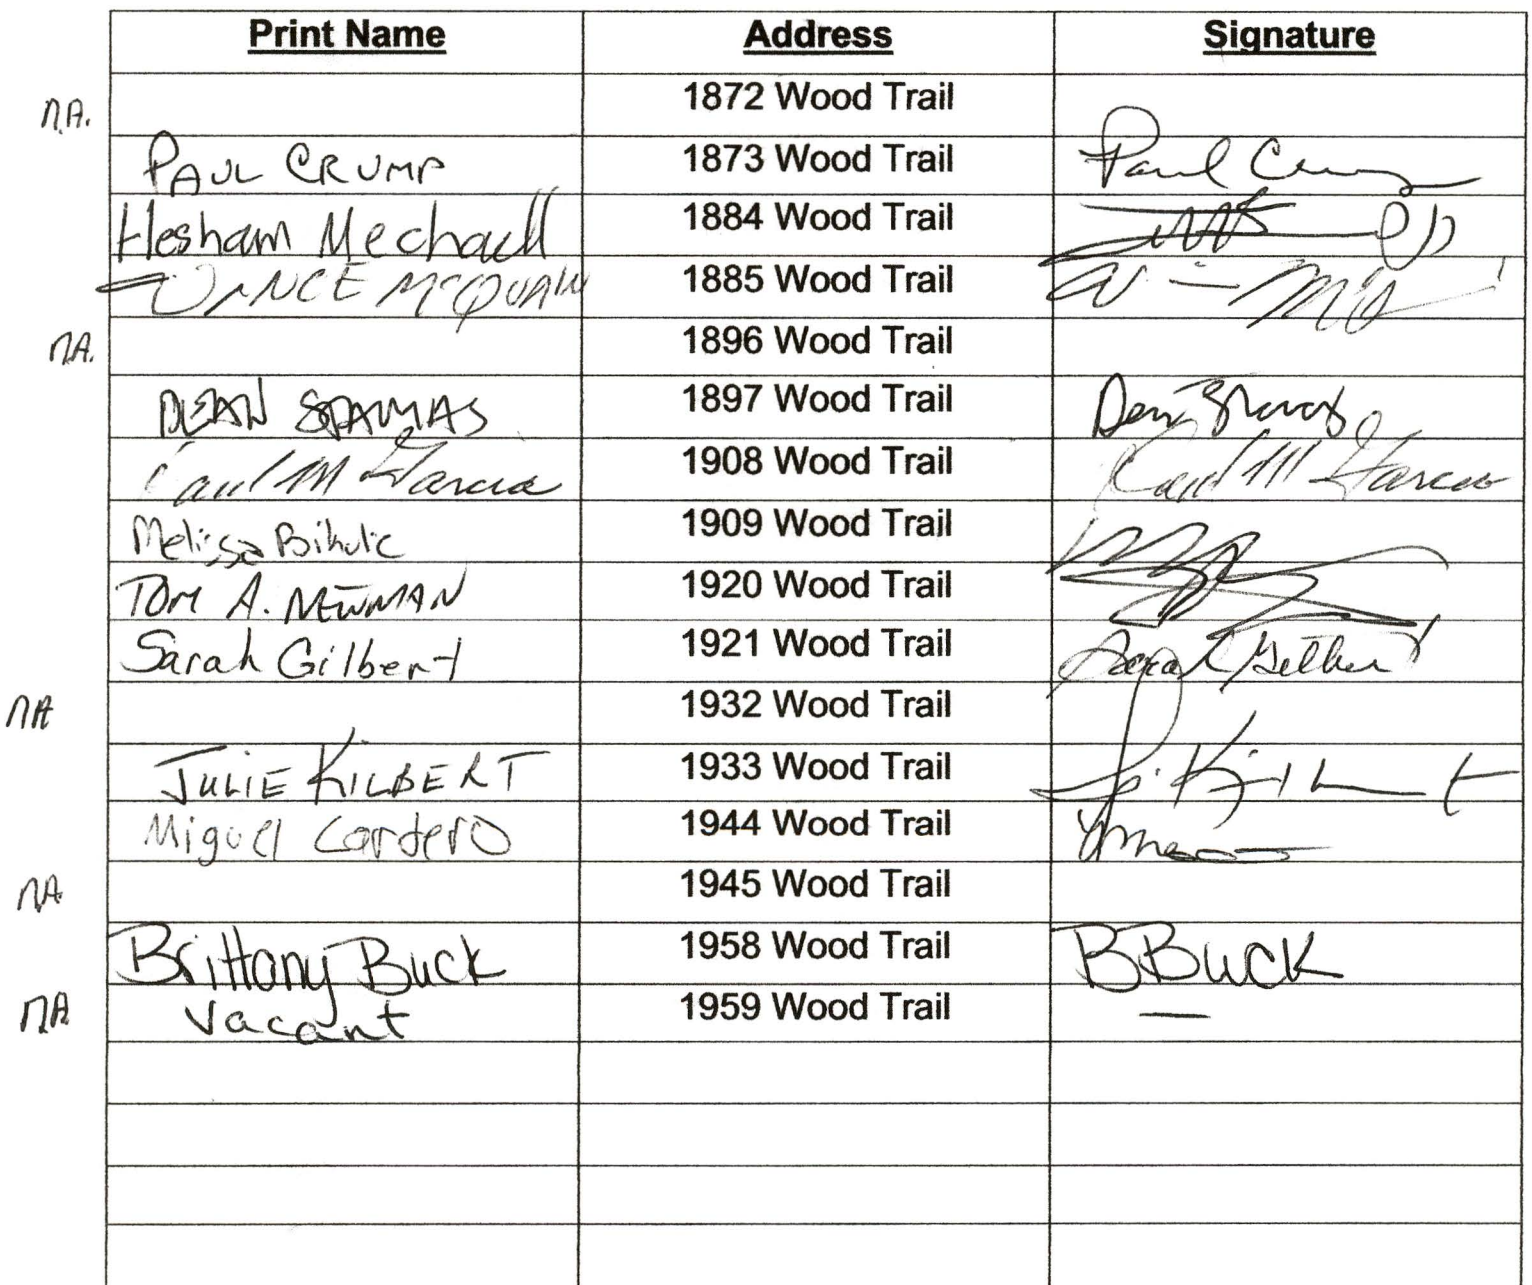 Print Name Address Signature
n.A. 1872 Wood Trail
PAUL CRUMP 1873 Wood Trail Paul Crump
Hesham Mechaell 1884 Wood Trail
VANCE McQUAIN 1885 Wood Trail
n.A. 1896 Wood Trail
DEAN 1897 Wood Trail Dean
Paul M Garcia 1908 Wood Trail Paul M Garcia
Melissa Bihulc 1909 Wood Trail
TOM A. NEWMAN 1920 Wood Trail
Sarah Gilbert 1921 Wood Trail Sarah Gilbert
nA 1932 Wood Trail
JULIE KILBERT 1933 Wood Trail
Miguel Cordero 1944 Wood Trail
nA 1945 Wood Trail
Brittany Buck 1958 Wood Trail BBuck
nA Vacant 1959 Wood Trail —